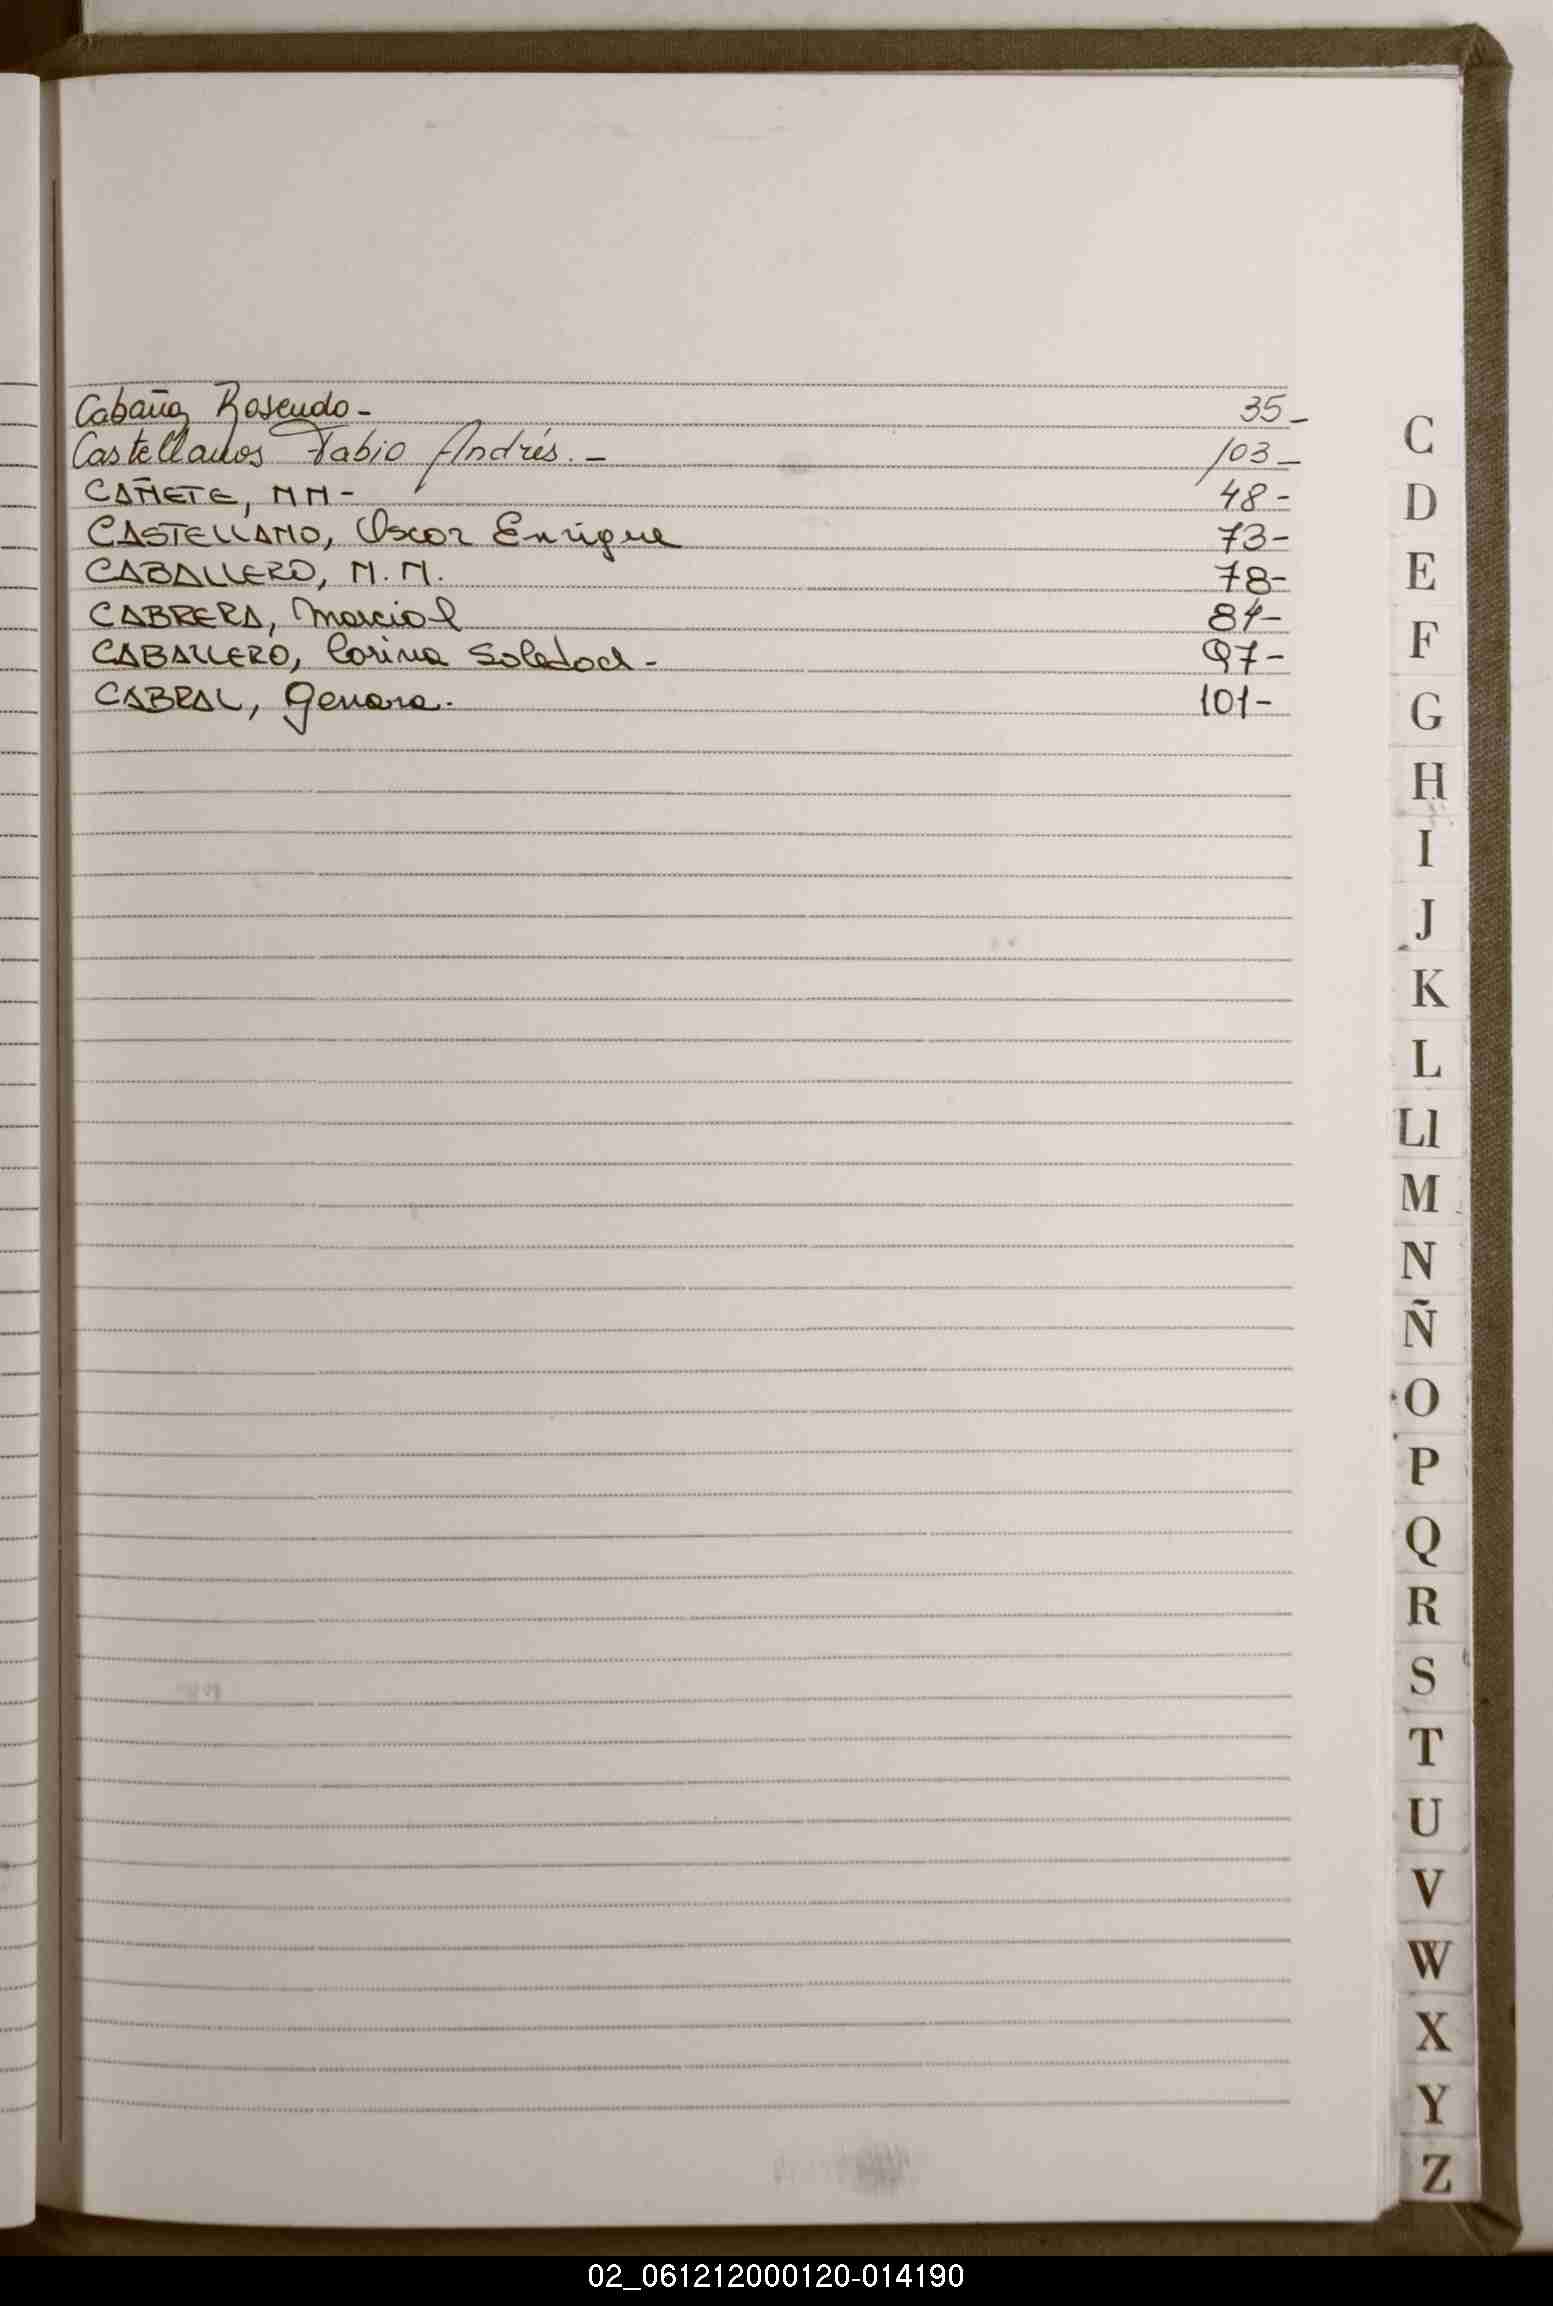 Cabaña Rosendo - 35 -
Castellanos Fabio Andrés. - 103 -
CAÑETE, NN - 48 -
CASTELLANO, Oscar Enrique 73 -
CABALLERO, N.N. 78 -
CABRERA, Marcial 84 -
CABALLERO, Corina Soledad - 97 -
CABRAL, Genara. 101 -
C
D
E
F
G
H
I
J
K
L
Ll
M
N
Ñ
O
P
Q
R
S
T
U
V
W
X
Y
Z
02_061212000120-014190